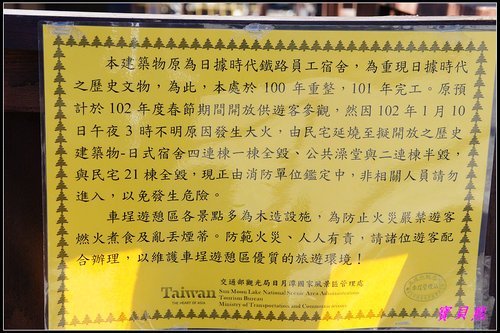 本建築物原為日據時代鐵路員工宿舍，為重現日據時代
之歷史文物，為此，本處於 100 年重整，101 年完工。原預
計於 102 年度春節期間開放供遊客參觀，然因 102 年 1 月 10
日午夜 3 時不明原因發生大火，由民宅延燒至擬開放之歷史
建築物-日式宿舍四連棟一棟全毀、公共澡堂與二連棟半毀，
與民宅 21 棟全毀，現正由消防單位鑑定中，非相關人員請勿
進入，以免發生危險。
車埕遊憩區各景點多為木造設施，為防止火災嚴禁遊客
燃火煮食及亂丟煙蒂。防範火災、人人有責，請諸位遊客配
合辦理，以維護車埕遊憩區優質的旅遊環境！
Taiwan
THE HEART OF ASIA
交通部觀光局日月潭國家風景區管理處
Sun Moon Lake National Scenic Area Administration
Tourism Bureau
Ministry of Transportation and Communications